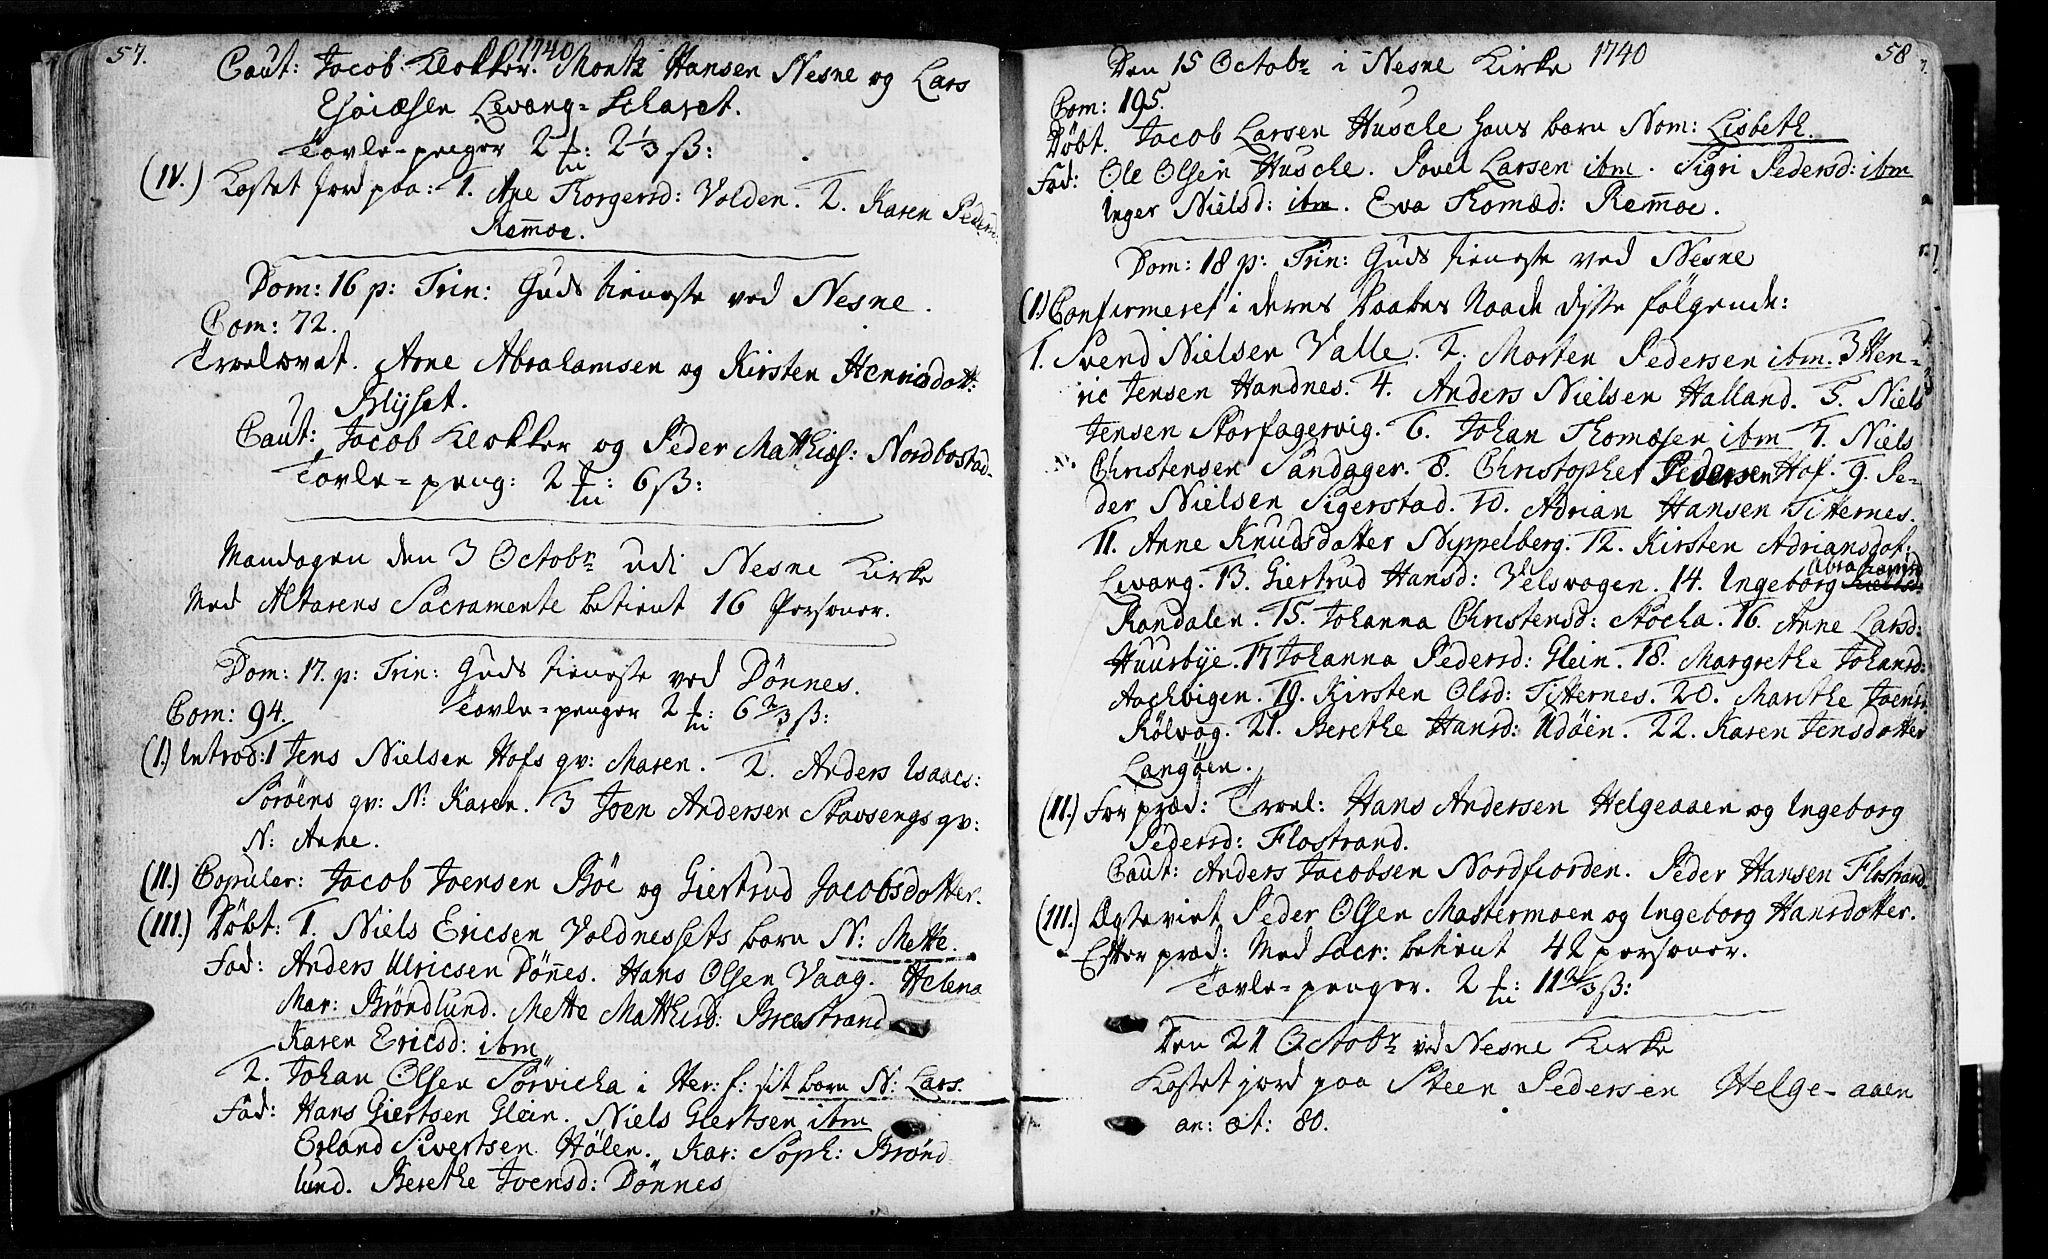 57.
1740
Caut: Jacob Klokker. Montz Hansen Nesne og Lars
Esaiæsen Levang-Scharet.
Tavle-penger 2 ₥: 2⅓ ß:
(IV.) Kastet Jord paa: 1. Ane Thorgersd: Volden. 2. Karen Pedersd:
Remmoe.
Dom: 16 p: Trin: Guds tieneste ved Nesne.
Com: 72.
Troelovet. Arne Abrahamsen og Kirsten Henricsdatt:
Blyset.
Caut: Jacob Klokker og Peder Matthiæs: Nordbostad.
Tavle-peng: 2 ₥: 6 ß:
Mandagen den 3 Octobr udi Nesne Kirke
Med Altarens Sacramente betient 16 Personer.
Dom: 17. p: Trin: Guds tieneste ved Dönnes.
Com: 94. Tavle-penger 2 ₥: 6 2/3 ß:
(I.) Introd: 1 Jens Nielsen Hofs qv: Maren. 2. Anders Isaacs:
Soröens qv: N: Karen. 3 Joen Andersen Stavsengs qv:
N: Anne.
(II.) Copuler: Jacob Joensen Böe og Giertrud Jacobsdotter.
(III.) Döbt: 1. Niels Ericsen Voldnessets barn N: Mette.
Fad: Anders Ulricsen Dönnes. Hans Olsen Vaag. Helena
Mar: Bröndlund. Mette Matthisd: Breestrand
Karen Ericsd: ibm
2. Johan Olsen Sörvicka i Her: f: sit barn N: Lars.
Fad: Hans Giertsen Glein. Niels Giertsen ibm
Erland Sivertsen Hölen. Kar: Soph: Brönd
lund. Berethe Joensd: Dönnes
58
Den 15 Octobr i Nesne Kirke 1740
Com: 195.
Döbt. Jacob Larsen Husche Hans barn Nom: Lisbeth.
Fad: Ole Olsen Husche. Povel Larsen ibm. Sigri Pedersd: ibm
Inger Nielsd: ibm. Eva Thomæd: Remmoe.
Dom: 18 p: Trin: Guds tieneste ved Nesne
(I.) Confirmeret i deres Daabes Naade disse fölgende:
1. Svend Nielsen Valle. 2. Morten Pedersen ibm. 3 Hen-
ric Jensen Handnes. 4. Anders Nielsen Halland. 5. Niels
Jensen Storfagervig. 6. Johan Thomæsen ibm 7. Niels
Christensen Sandager. 8. Christopher Pedersen Hof. 9. Pe-
der Nielsen Sigerstad. 10. Adrian Hansen Titternes.
11. Anne Knudsdatter Nyppelberg. 12. Kirsten Adriansdot:
Levang. 13. Giertrud Hansd: Velsvogen. 14. Ingeborg Abrahamsd
Randalen. 15. Johanna Christensd: Stocka. 16. Anne Larsd:
Huusbye. 17 Johanna Pedersd: Glein. 18. Margrethe Johansd:
Aachvigen. 19. Kirsten Olsd: Titternes. 20. Marithe Joensd:
Rölvog. 21. Berethe Hansd: Udöen. 22. Karen Jensdotter
Langöen.
(II.) For præd: Troel: Hans Andersen Helgeaaen og Ingeborg
Pedersd: Flostrand.
Caut: Anders Jacobsen Nordfiorden. Peder Hansen Flostrand.
(III.) Ægteviet Peder Olsen Mastermoen og Ingeborg Hansdotter.
Efter præd: Med Sacr: betient 42 personer.
Tavle-penger. 2 ₥: 11 2/3 ß:
Den 21 Octobr ved Nesne Kirke
Kastet jord paa Steen Pedersen Helge-aaen
an: æt: 80.